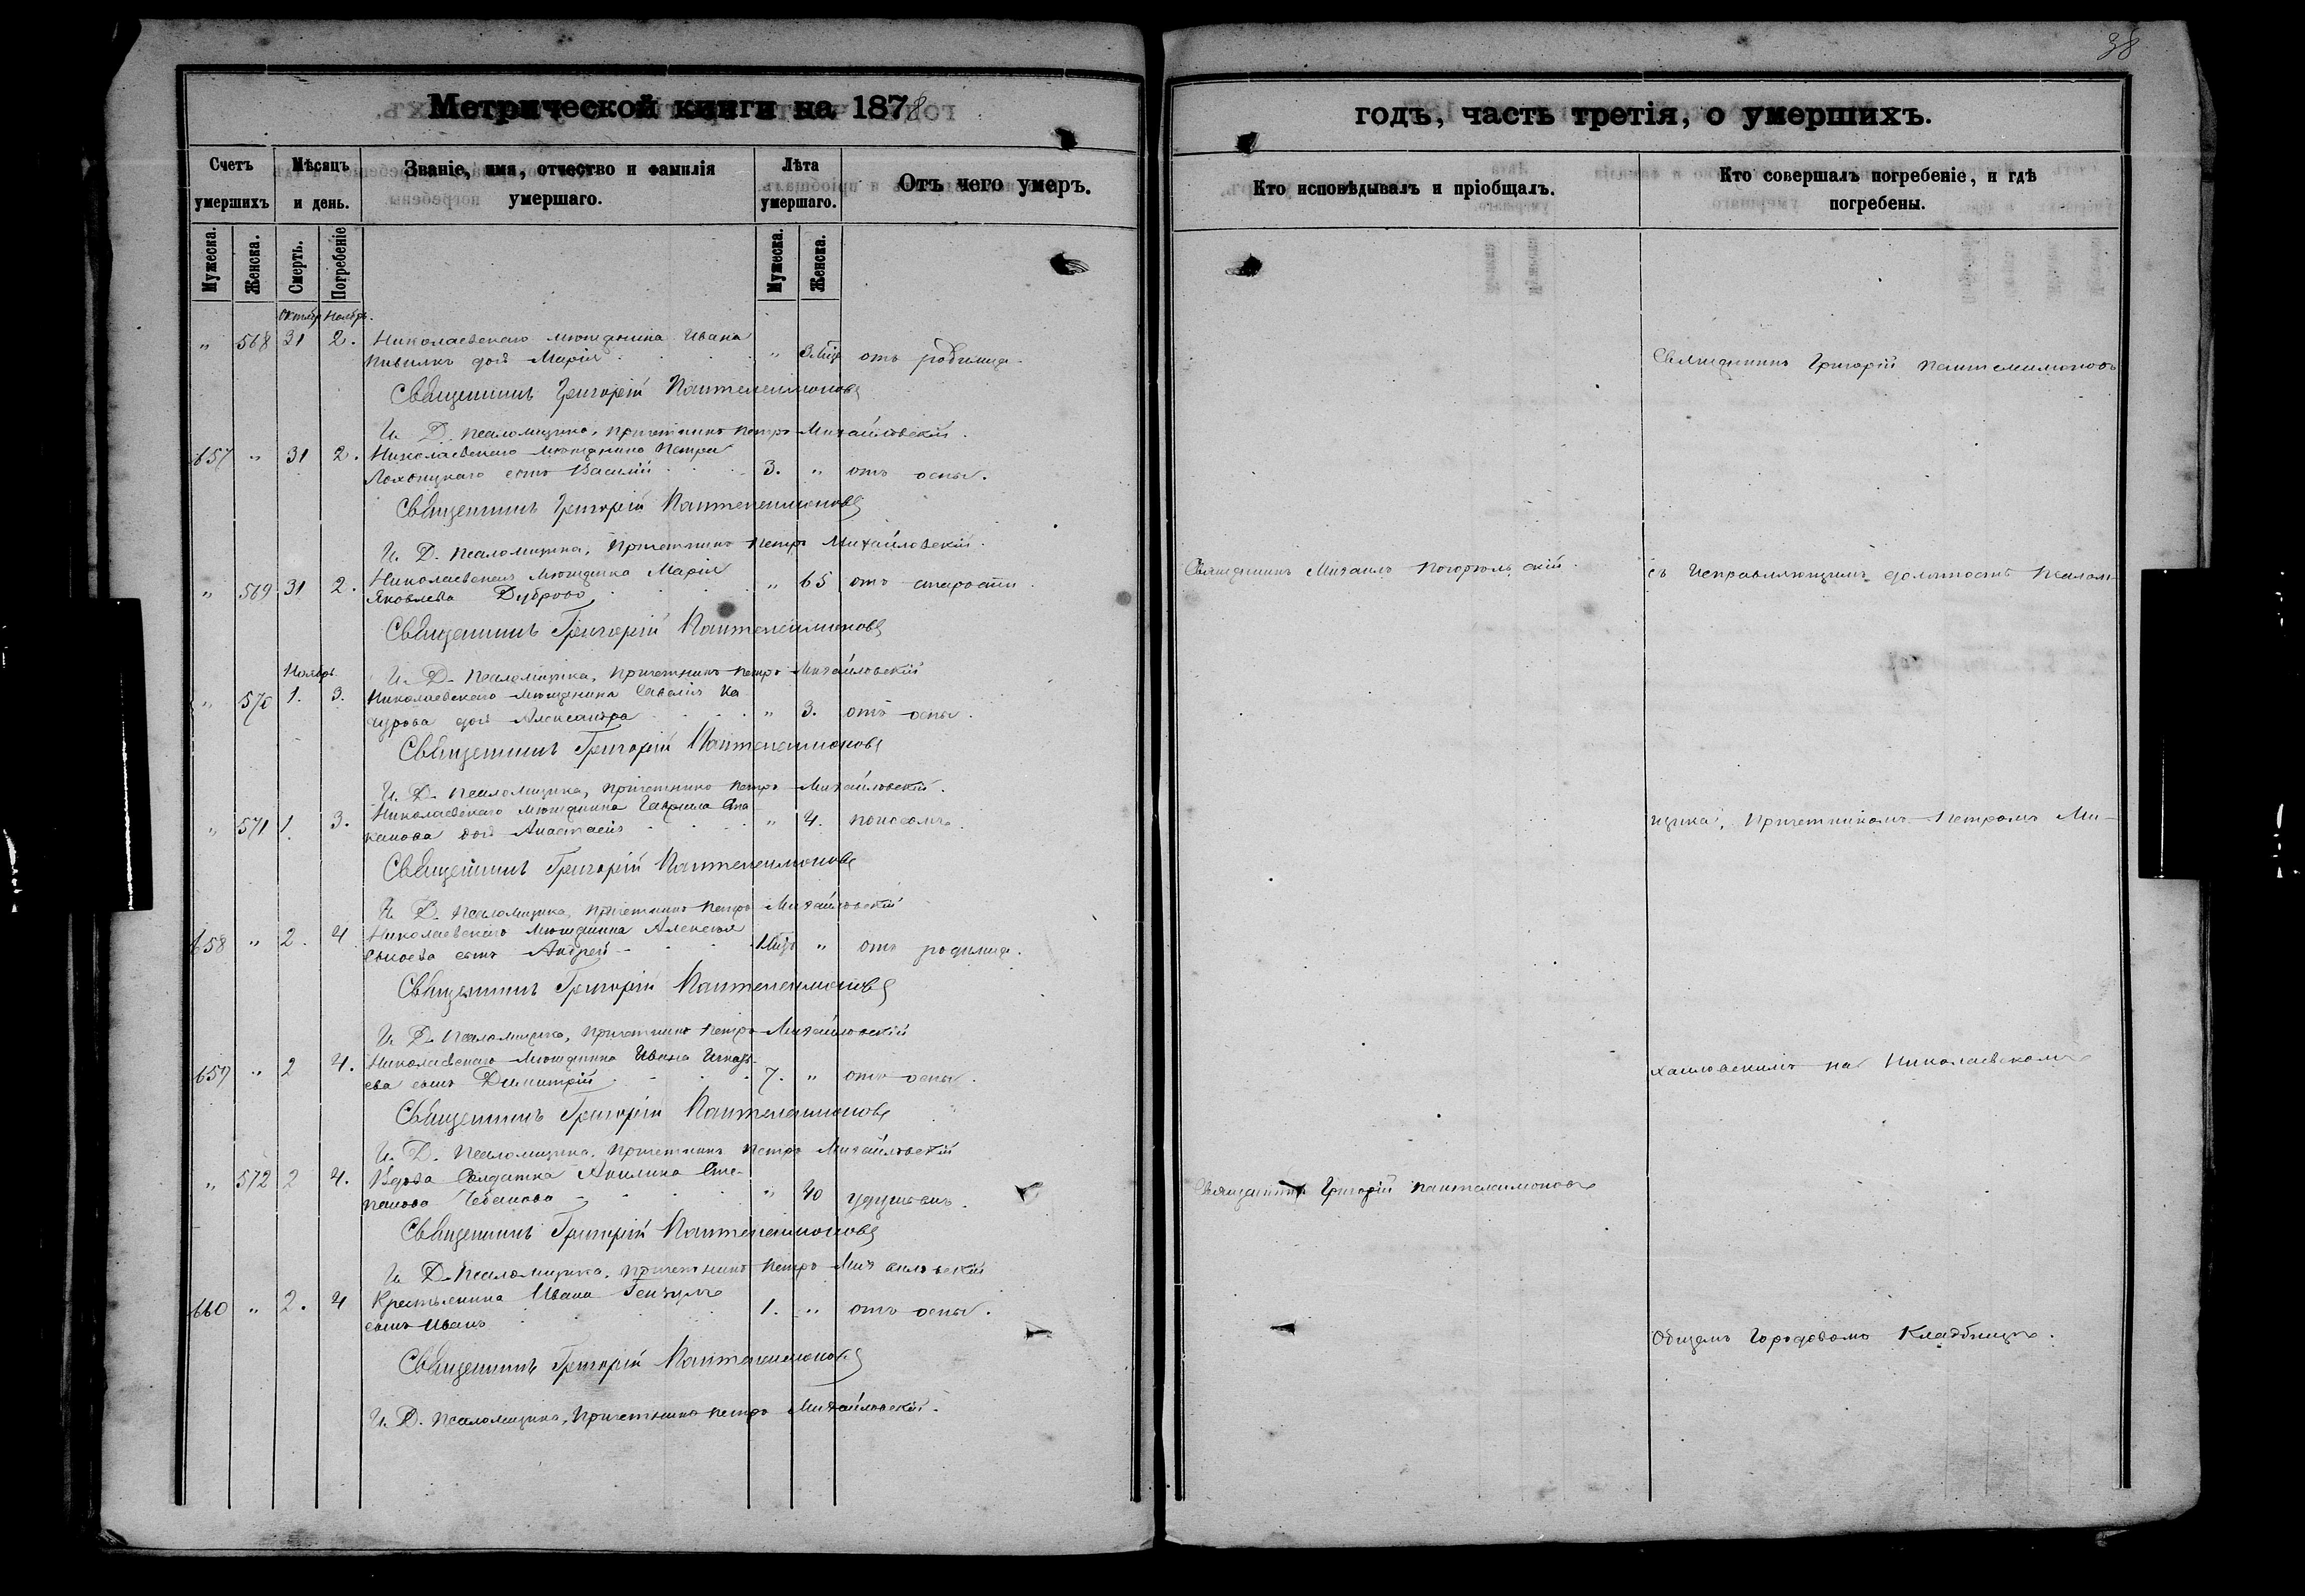 38
Метрической книги на 1878
годъ, часть третія, о умершихъ.
Счетъ умершихъ
Мѣсяцъ и день.
Званіе, имя, отчество и фамилія умершаго.
Лѣта умершаго.
Отъ чего умеръ.
Кто исповѣдывалъ и пріобщалъ.
Кто совершалъ погребеніе, и гдѣ погребены.
Мужеска.
Женска.
Смерть.
Погребеніе
Мужеска.
Женска.
Октябр Ноябрь.
" 568 31 2. Николаевскаго мѣщанина Ивана
дочь Марія " отъ родимца.
Священникъ Григорій Пантелеимоновъ
Священникъ Григорій Пантелеимоновъ
И. Д. Псаломщика, Причетникъ Петръ Михайловскій.
657 " 31 2. Николаевскаго мѣщанина Петра
сынъ Василій 3. " отъ оспы.
Священникъ Григорій Пантелеимоновъ
И. Д. Псаломщика, Причетникъ Петръ Михайловскій.
" 569 31 2. Николаевская мѣщанка Марія
Яковлева Дуброва " 65 отъ старости
Священникъ Михаилъ
съ Исправляющимъ должность Псалом-
Священникъ Григорій Пантелеимоновъ
Ноябрь
И. Д. Псаломщика, Причетникъ Петръ Михайловскій
" 570 1. 3. Николаевскаго мѣщанина Савелія Ка
цурова дочь Александра " 3. отъ оспы.
Священникъ Григорій Пантелеимоновъ
И. Д. Псаломщика, Причетникъ Петръ Михайловскій.
" 571 1. 3. Николаевскаго мѣщанина Гавріила
дочь Анастасія " 4. поносомъ.
щика, Причетникомъ Петромъ Ми-
Священникъ Григорій Пантелеимоновъ
И. Д. Псаломщика, Причетникъ Петръ Михайловскій
658 " 2. 4 Николаевскаго мѣщанина Алексѣя
сынъ Андрей " отъ родимца.
Священникъ Григорій Пантелеимоновъ
И. Д. Псаломщика, Причетникъ Петръ Михайловскій
659 " 2 4. Николаевскаго мѣщанина Ивана Игнать-
ева сынъ Димитрій 7. " отъ оспы.
хайловскимъ на Николаевскомъ
Священникъ Григорій Пантелеимоновъ
И. Д. Псаломщика, Причетникъ Петръ Михайловскій
" 572 2 4. Вдова Солдатка Акилина Сте-
панова Чебанова " 40 удушьемъ.
Священникъ Григорій Пантелеимоновъ
Священникъ Григорій Пантелеимоновъ
И. Д. Псаломщика, Причетникъ Петръ Михайловскій
660 " 2. 4 Крестьянина Ивана
сынъ Иванъ 1. " отъ оспы.
Общемъ Городовомъ Кладбищѣ.
Священникъ Григорій Пантелеимоновъ
И. Д. Псаломщика, Причетникъ Петръ Михайловскій.